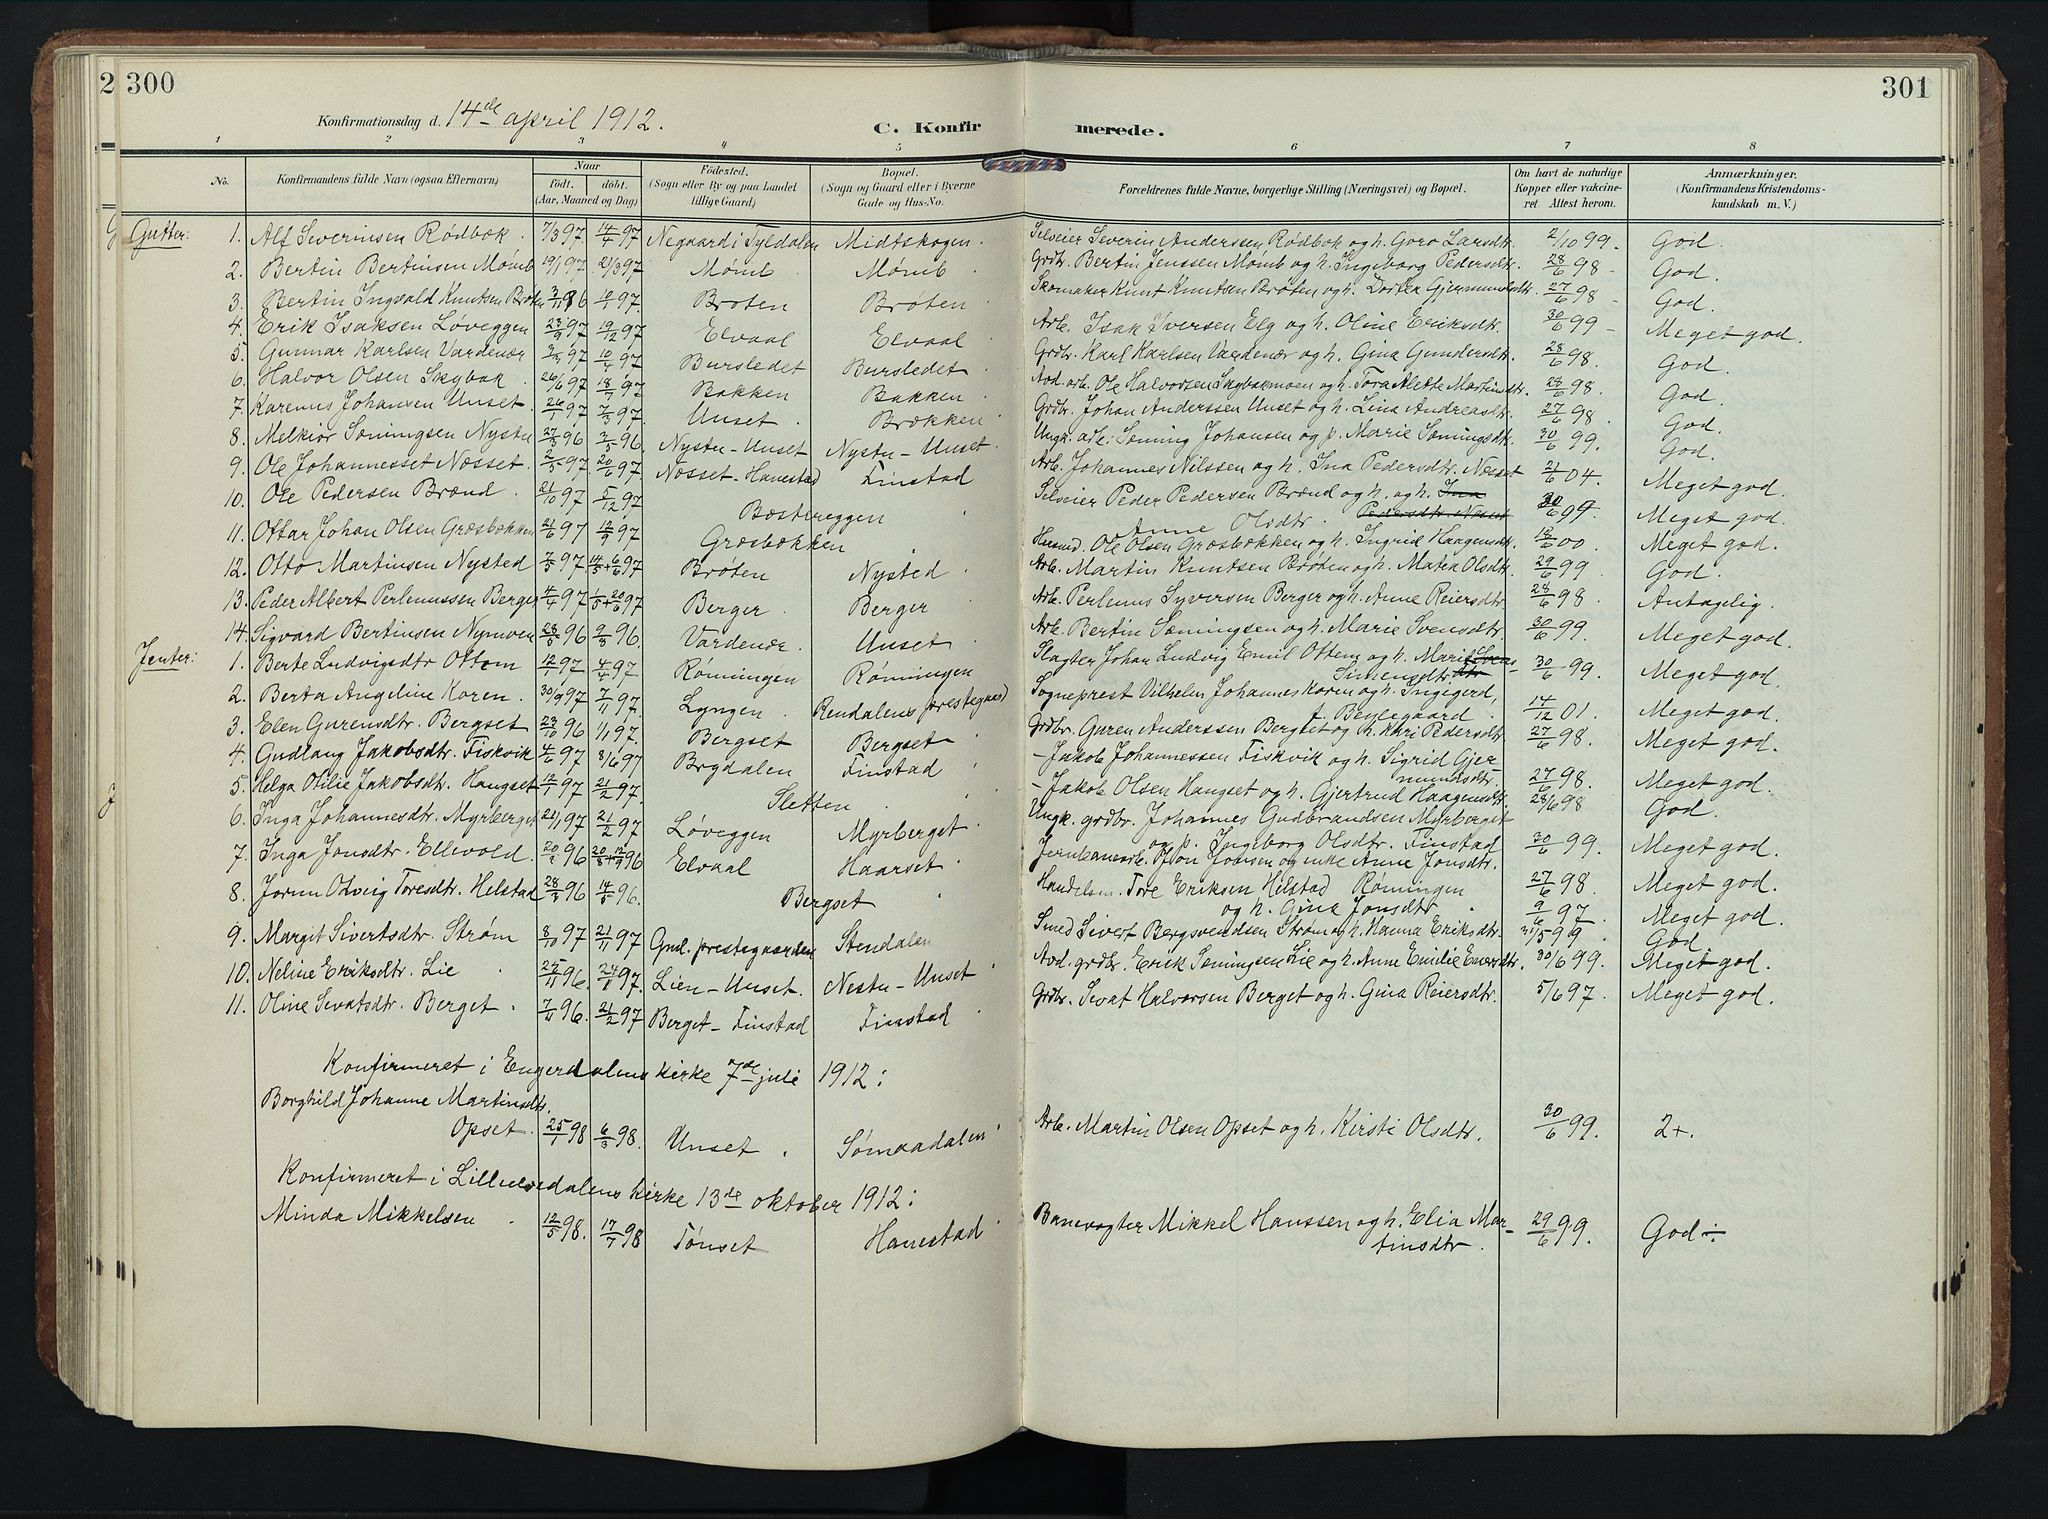 2 300
301
Konfirmationsdag d. 14de april 1912.
C. Konfirmerede.
1 2 3 4 5 6 7 8
No. Konfirmandens fulde Navn (ogsaa Efternavn) Naar født. døbt. (Aar, Maaned og Dag) Fødested. (Sogn eller By og paa Landet tillige Gaard) Bopæl. (Sogn og Gaard eller i Byerne Gade og Hus-No. Forældrenes fulde Navne, borgerlige Stilling (Næringsvei) og Bopæl. Om havt de naturlige Kopper eller vakcineret. Attest herom. Anmærkninger. (Konfirmandens Kristendomskundskab m. V.)
Gutter:
1. Alf Severinsen Rødbæk. 7/3 97. 14/4 97 Negaard i Tyldalen Midtskogen. Selveier Severin Anderssen Rødbæk og h. Goro Larsdtr. 2/10 99. God.
2. Bertin Bertinsen Mømb 19/1 97 21/3 97 Mømb Mømb Grdbr. Bertin Jenssen Mømb og h. Ingeborg Pedersdtr. 28/6 98 - God.
3. Bertin Ingvald Knutsen Brøten 97. Brøten Brøten Skomaker Knut Knutsen Brøten og h. Dortea Gjermundsdtr. 27/6 98 - God.
4. Erik Isaksen Løveggen 23/9 97 19/12 97 Elvaal Elvaal Arb. Isak Iversen Elg og h. Oline Eriksdtr. 30/6 99 - Meget god.
5. Gunnar Karlsen Vardenær 97 10/4 97 Bursledet Bursledet Grdbr. Karl Karlsen Vardenær og h. Gina Gundersdtr. 28/6 98. God.
6. Halvor Olsen Skybak. 26/6 97 18/7 97 Bakken Bakken Avd. arb. Ole Halvorsen Skybakmoen og h. Tora Alette Martinsdtr. 28/6 98. God.
7. Karenus Johansen Unset. 26/1 97 7/3 97. Unset. Brækken Grdbr. Johan Anderssen Unset og h. Lina Andreasdtr. 27/6 98. God.
8. Melkior Sæmingsen Nystu 27/3 96 3/5 96. Nystu-Unset Nystu-Unset Ungk. arb. Sæming Johansen og p. Marie Sæmingsdtr. 30/6 99. God.
9. Ole Johannesset Næsset. 2/5 97. 20/6 97 Næsset-Hanestad Finstad Arb. Johannes Nilssen og h. Ina Pedersdtr. Næsset 21/6 04. Meget god.
10. Ole Pedersen Brænd. 21/10 97 5/12 97 Bæstereggen Selveier Peder Pedersen Brænd og h. og h. Ina Pedersdtr. Næsset
Anne Olsdtr. 30/6 99. Meget god.
11. Ottar Johan Olsen Græsbækken 21/6 97 12/9 97. Græsbækken Husmd. Ole Olsen Græsbækken og h. Ingrid Haagensdtr. 18/6 00. Meget god.
12. Otto Martinsen Nysted 7/5 97. 14/5 + 6/6 97 Brøten Nysted Arb. Martin Knutsen Brøten og h. Matea Olsdtr. 29/6 99. God.
13. Peder Albert Perlemussen Berger 4/4 97 1/5 + 20/6 97 Berger. Berger Arb. Perlemus Syversen Berger og h. Anne Reiersdtr. 28/6 98. Antagelig.
14. Sigvard Bertinsen Nymoen 28/5 96 9/8 96. Vardenær. Unset Arb. Bertin Sæmingsen og h. Marie Svensdtr. 30/6 99. Meget god.
Jenter:
1. Berte Ludvigsdtr. Ottem 12/1 97 4/4 97 Rønningen Rønningen Slagter Johan Ludvig Emil Ottem og h. Marit Svensdtr
Simensdtr. 30/6 99. Meget god.
2. Berta Angeline Koren. 30/9 97 7/11 97. Lyngen. Rendalens prestegaard Sogneprest Vilhelm Johannes Koren og h. Ingegerd,
f. Beylegaard. 14/12 01. Meget god.
3. Elen Gurensdtr. Bergset 23/10 96 1/1 97. Bergset Bergset Grdbr. Guren Anderssen Bergset og h. Kari Pedersdtr 27/6 98. Meget god.
4. Gudlaug Jakobsdtr. Fiskvik 4/6 97 8/6 97 Brydalen Finstad - Jakob Johannessen Fiskvik og h. Sigrid Gjermundsdtr. 27/6 98. Meget god.
5. Helga Otilie Jakobsdtr. Hangset 12/1 97 21/2 97. Sletten - Jakob Olsen Hangset og h. Gjertrud Haagensdtr. 28/6 98 God.
6. Inga Johannesdtr. Myrberget 21/1 97 21/2 97 Løveggen Myrberget Ungk. grdbr. Johannes Gudbrandsen Myrberget
og p. Ingeborg Olsdtr. Finstad 30/6 99. Meget god.
7. Inga Jonsdtr. Ellevold. 20/2 96 96 Elvaal Haarset Jernbanearb. Jon Jonsen og enke Anne Jonsdtr. 27/6 98. Meget god.
8. Jorun Odveig Toresdtr. Helstad 28/3 96 14/5 96. Bergset Handelsm. Tore Eriksen Helstad Røningen
og h. Gina Jonsdtr. 9/6 97. Meget god.
9. Margit Sivertsdtr. Strøm 8/10 97 21/11 97 Gml. prestegaarden Stendalen Smed Sivert Bergsvendsen Strøm og h. Hanna Eriksdtr. 31/5 99. God.
10. Neline Eriksdtr. Lie 25/11 96. 24/1 97. Lien-Unset. Nestu-Unset Avd. grdbr. Erik Sæmingsen Lie og h. Anne Emilie Enersdtr. 30/6 99. Meget god.
11. Oline Sevatsdtr. Berget. 7/11 96. 21/2 97 Berget-Finstad Finstad Grdbr. Sevat Halvorsen Berget og h. Gina Reiersdtr. 5/6 97. Meget god.
Konfirmeret i Engerdalens kirke 7de juli 1912:
Borghild Johanne Martinsdtr.
Opset. 25/1 98 6/3 98. Unset. Sømaadalen Arb. Martin Olsen Opset og h. Kirsti Olsdtr. 30/6 99. 2+.
Konfirmeret i Lilleelvedalens kirke 13de oktober 1912:
Minda Mikkelsen 12/5 98. 17/7 98 Tønset Hanestad Banevogter Mikkel Hanssen og h. Elia Martinsdtr. 29/6 99. God ÷